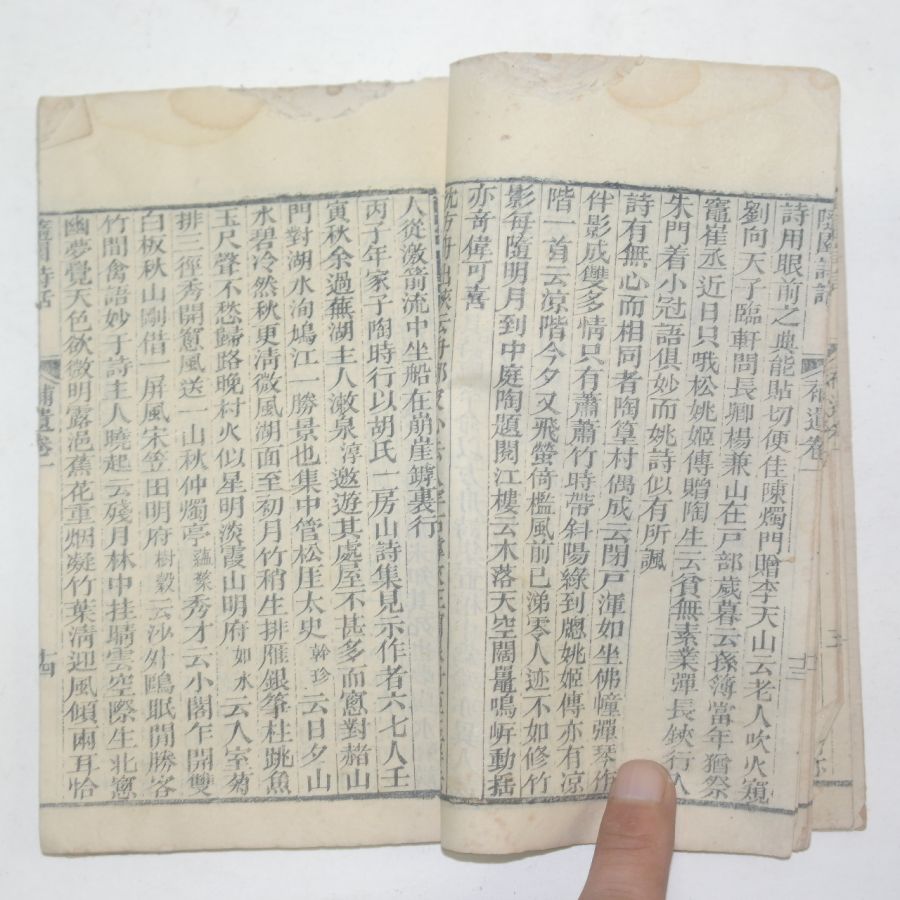 隨園詩話
補遺卷一
詩用眼前之典能貼切便佳陳燭門贈李天山云老人吹火窺
劉向天子臨軒問長卿楊兼山在戶部歲暮云孫簿當年猶祭
竈崔丞近日只哦松姚姬傳贈陶生云貧無素業彈長鋏行入
朱門着小冠語俱妙而姚詩似有所諷
詩有無心而相同者陶篁村偶成云閉戶渾如坐佛幢彈琴作
伴影成雙多情只有蕭蕭竹時帶斜陽綠到牕姚姬傳亦有凉
階一首云凉階今夕又飛螢倚檻風前已涕零人迹不如修竹
影每隨明月到中庭陶題閱江樓云木落天空闊鼉鳴岸動搖
亦奇偉可喜
人從激箭流中坐船在崩崖鏬裏行
丙丁年家子陶時行以胡氏一房山詩集見示作者六七人壬
寅秋余過蕪湖主人漱泉淳邀遊其處屋不甚多而窻對赭山
門對湖水洵鳩江一勝景也集中管松厓太史幹珍云日夕山
水碧冷然秋更清微風湖面至初月竹稍生排雁銀箏柱跳魚
玉尺聲不愁歸路晚村火似星明淡霞山明府如水云入室菊
排三徑秀開窻風送一山秋仲燭亭蘊檠秀才云小閣年開雙
白板秋山剛借一屏風宋笠田明府樹穀云沙外鷗眠閒勝客
竹間禽語妙于詩主人曉起云殘月林中挂晴雲空際生北窻
幽夢覺天色欲微明露浥蕉花重烟凝竹葉清迎風傾兩耳恰
隨園詩話
補遺卷一
十四